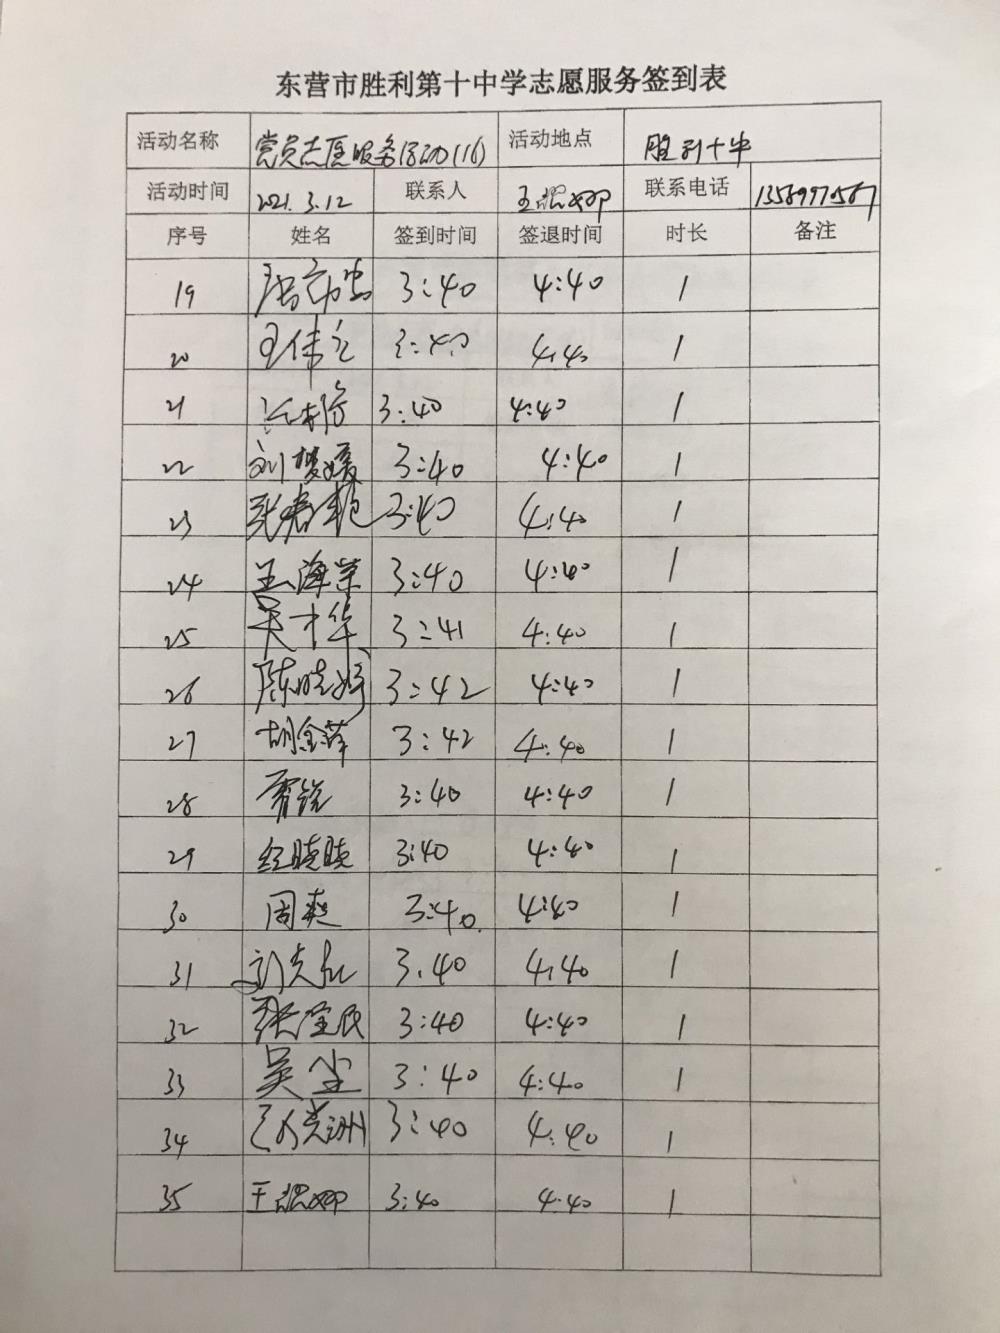 东营市胜利第十中学志愿服务签到表
活动名称 党员志愿服务活动(16) 活动地点 胜利十中
活动时间 2021.3.12 联系人 王 联系电话
序号 姓名 签到时间 签退时间 时长 备注
19 3:40 4:40 1
20 王伟 3:40 4:40 1
21 3:40 4:40 1
22 刘梦媛 3:40 4:40 1
23 张春艳 3:40 4:40 1
24 王海荣 3:40 4:40 1
25 吴才华 3:41 4:40 1
26 陈晓婷 3:42 4:40 1
27 胡金萍 3:42 4:40 1
28 3:40 4:40 1
29 纪晓晓 3:40 4:40 1
30 周爽 3:40 4:40 1
31 刘 3:40 4:40 1
32 张宝民 3:40 4:40 1
33 吴 3:40 4:40 1
34 3:40 4:40 1
35 王 3:40 4:40 1